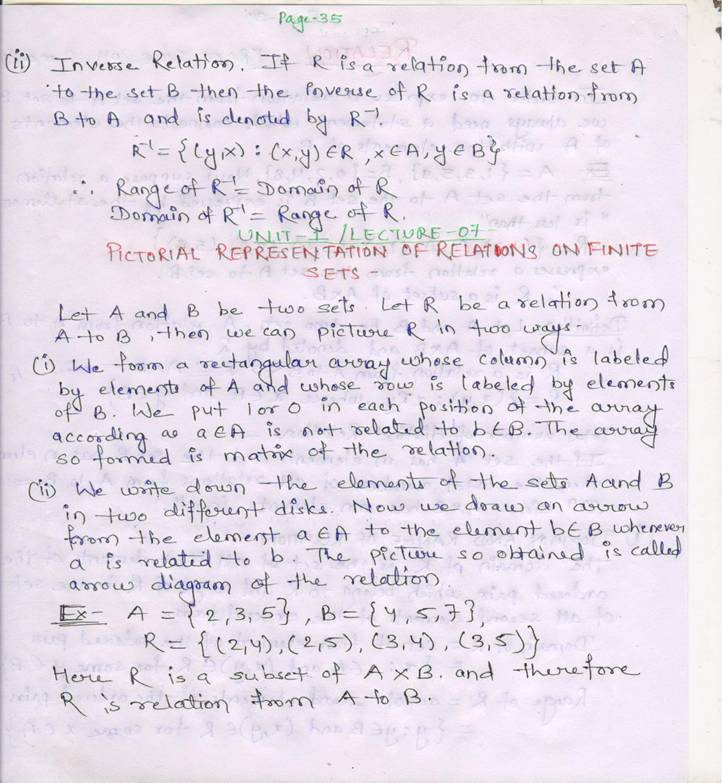 Page-35
(ii) Inverse Relation. If R is a relation from the set A
to the set B then the inverse of R is a relation from
B to A and is denoted by R⁻¹.
R⁻¹ = {(y,x) : (x,y) ∈ R, x ∈ A, y ∈ B}
∴ Range of R⁻¹ = Domain of R
Domain of R⁻¹ = Range of R.
UNIT-I / LECTURE-07
PICTORIAL REPRESENTATION OF RELATIONS ON FINITE
SETS-
Let A and B be two sets. Let R be a relation from
A to B, then we can picture R in two ways.
(i) We form a rectangular array whose column is labeled
by elements of A and whose row is labeled by elements
of B. We put 1 or 0 in each position of the array
according as a ∈ A is not related to b ∈ B. The array
so formed is matrix of the relation.
(ii) We write down the elements of the sets A and B
in two different disks. Now we draw an arrow
from the element a ∈ A to the element b ∈ B whenever
a is related to b. The picture so obtained is called
arrow diagram of the relation.
Ex- A = {2,3,5}, B = {4,5,7},
R = {(2,4), (2,5), (3,4), (3,5)}
Here R is a subset of A X B. and therefore
R is relation from A to B.